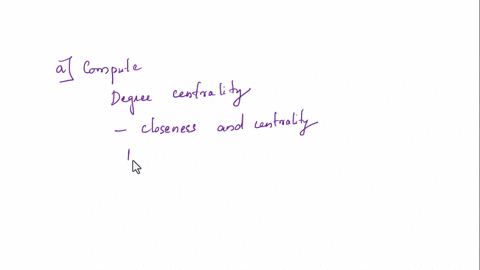 a] Compute
Degree centrality
- closeness and centrality